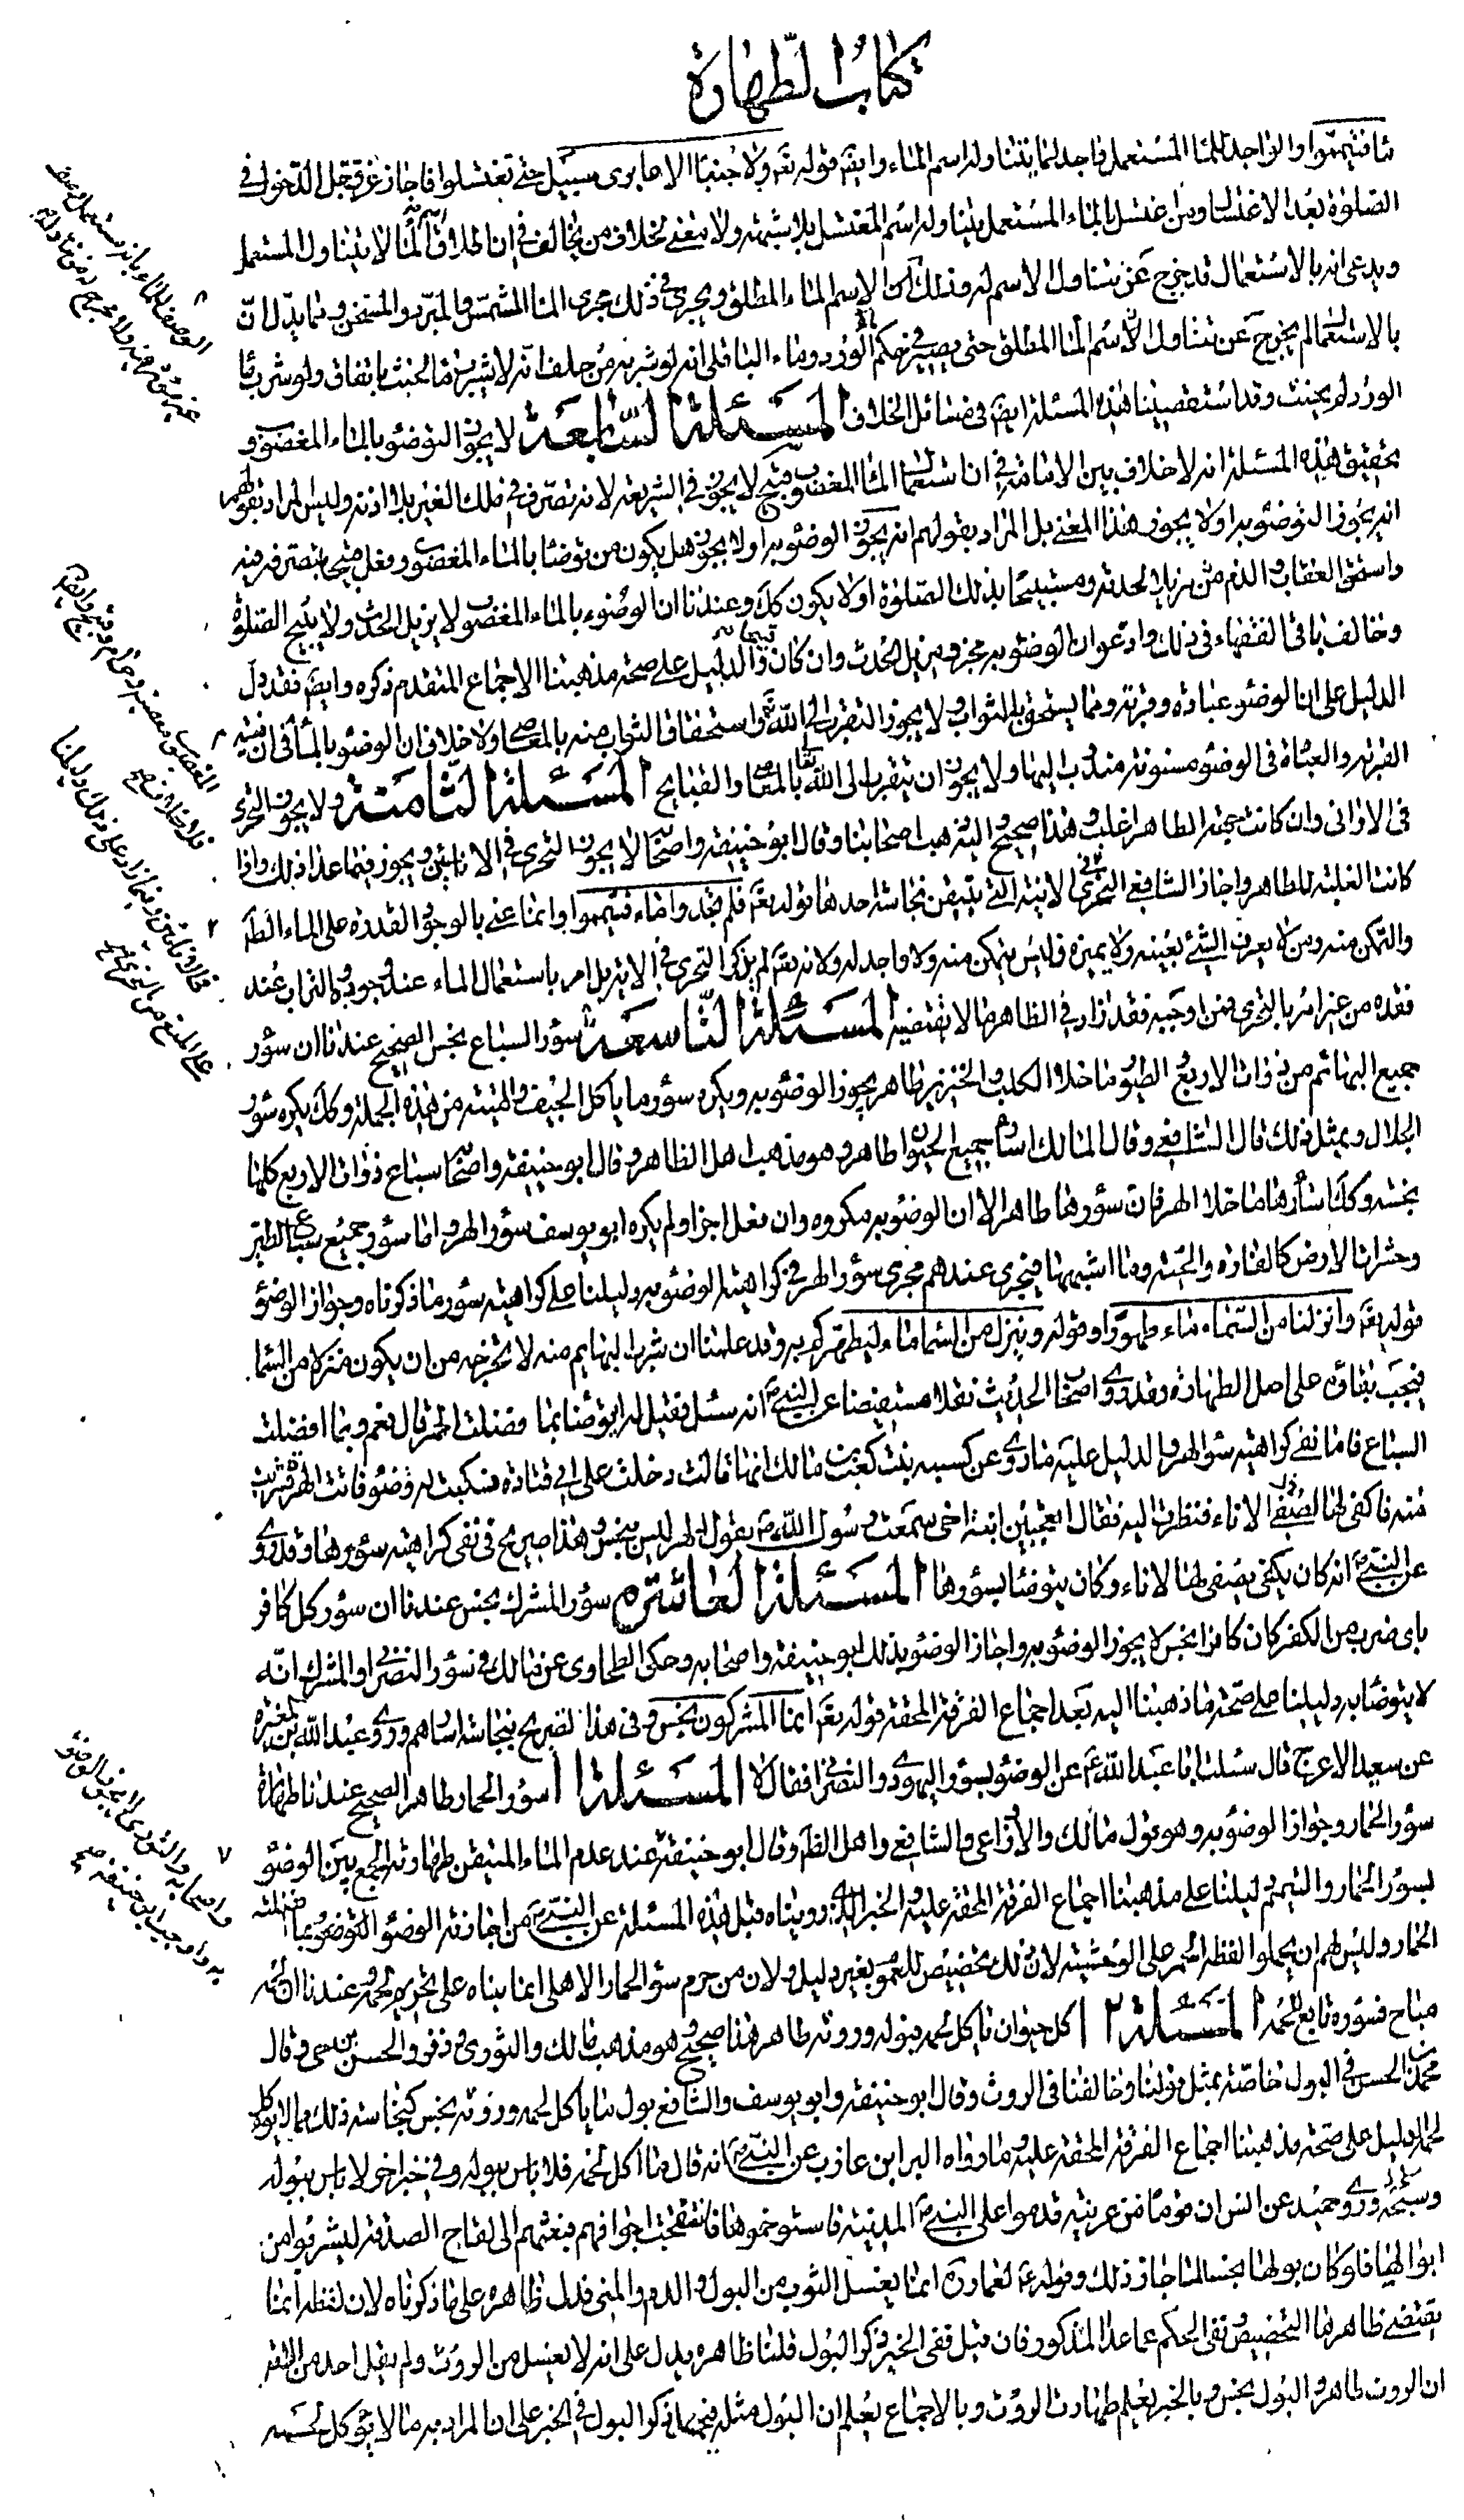 كتاب الطهارة
ماء فتيمموا والواجد للماء المستعمل واجد لما يتناوله اسم الماء وايضا قوله تعالى ولا جنبا الا عابرى سبيل حتى تغتسلوا فاجاز عز وجل الدخول في
الصلوة بعد الاغتسال ومن اغتسل بالماء المستعمل يتناوله اسم المغتسل بلا شبهة ولا معنى لخلاف من يخالف في ان اطلاق اسم الماء لا يتناول المستعمل
ويدعى انه بالاستعمال قد خرج عن تناول الاسم له وذلك ان الاسم الماء المطلق ويجرى في ذلك مجرى الماء المشمس والمبرد والمسخن ومما يدل ان
بالاستعمال لم يخرج عن تناول الاسم الماء المطلق حتى يصير في حكم ماء الورد وماء الباقلى انه لو شربه من حلف انه لا يشرب ماء لحنث باتفاق ولو شرب ماء
الورد لم يحنث وقد استقصينا هذه المسئلة ايضا في مسائل الخلاف المسئلة السابعة لا يجوز التوضؤ بالماء المغصوب و
تحقيق هذه المسئلة انه لا خلاف بين الامة في ان استعمال الماء المغصوب قبيح لا يجوز في الشريعة لانه تصرف في ملك الغير بلا اذنه وليس المراد بقولهم
انه يجوز التوضؤ به او لا يجوز هذا المعنى بل المراد بقولهم انه يجوز الوضوء به او لا يجوز هل يكون من توضأ بالماء المغصوب وفعل قبيحا بتصرفه فيه
واستحق العقاب والذم من مزيلا لحدثه ومستبيحا بذلك الصلوة او لا يكون كك وعندنا ان الوضوء بالماء المغصوب لا يزيل الحدث ولا يبيح الصلوة
وخالف باقى الفقهاء في ذلك وادعوا ان الوضوء به مجز ومزيل للحدث وان كان قبيحا والدليل على صحة مذهبنا الاجماع المتقدم ذكره وايضا فقد دل
الدليل على ان الوضوء عبادة وقربة ومما يستحق به الثواب ولا يجوز التقرب الى الله واستحقاق الثواب منه بالمعاصى ولا خلاف ان الوضوء بالماء في ان فيه
القربة والعبادة في الوضوء مسنونة مندوب اليها ولا يجوز ان يتقرب الى الله تعالى بالمعاصى والقبايح المسئلة الثامنة ولا يجوز التحرى
فى الاوانى وان كانت جهة الطاهر اغلب وهذا صحيح واليه ذهب اصحابنا وقال ابو حنيفة واصحابه لا يجوز التحرى في الانائين ويجوز فيما عدا ذلك واذا
كانت الغلبة للطاهر واجاز الشافعى التحرى في الانية التى يتيقن نجاسة احدها قوله تعالى فلم تجدوا ماء فتيمموا وانما عنى بالوجود القدرة على الماء الطاهر
والتمكن منه ومن لا يعرف الشئ بعينه ولا يميزه فليس يتمكن منه ولا واجد له ولانه تعالى لم يذكر التحرى في الاية بل امر باستعمال الماء عند وجوده والتراب عند
فقده من غير امر بالتحرى فمن اوجبه فقد زاد في الظاهر ما لا تقتضيه المسئلة التاسعة سؤر السباع نجس الصحيح عندنا ان سؤر
جميع البهائم من ذوات الاربع والطيور ما خلا الكلب والخنزير طاهر يجوز الوضوء به ويكره سؤر ما يأكل الجيف والميتة من هذه الجملة وكك يكره سؤر
الجلال وبمثل ذلك قال الشافعى وقال مالك اسآر جميع الحيوان طاهرة وهو مذهب اهل الظاهر وقال ابو حنيفة واصحابه سباع ذوات الاربع كلها
نجسة وكك اسآرها ما خلا الهر فان سؤرها طاهر الا ان الوضوء به مكروه وان فعل اجزأ ولم يكره ابو يوسف سؤر الهر واما سؤر جميع سباع الطير
وحشرات الارض كالفارة والحية وما اشبهها فيجرى عندهم مجرى سؤر الهر في كراهية الوضوء به دليلنا على كراهية سؤر ما ذكرناه وجواز الوضوء
قوله تعالى وانزلنا من السماء ماء طهورا وقوله وينزل من السماء ماء ليطهركم به وقد علمنا ان شرب البهايم منه لا يخرجه من ان يكون منزلا من السماء
فيجب بقاؤه على اصل الطهارة وقد روى اصحاب الحديث نقلا مستفيضا عن النبى ص انه سئل فقيل له ايتوضأ بما فضلت الحمر قال نعم وبما افضلت
السباع فاما نفى كراهية سؤر الهر والدليل عليه ما روى عن كبشه بنت كعب بن مالك انها قالت دخلت على ابى قتادة فسكبت له وضوء فاتت الهرة فشربت
منه فاكفى لها الاناء فنظرت اليه فقال اتعجبين ابنة اخى سمعت رسول الله ص يقول الهر ليس بنجس وهذا صريح في نفى كراهية سؤرها وقد روى
عن النبى ص انه كان يكفى يصفى لها الاناء وكان يتوضأ بسؤرها المسئلة العاشرة سؤر المشرك نجس عندنا ان سؤر كل كافر
باى ضرب من الكفر كان كافرا نجس لا يجوز الوضوء به واجاز الوضوء بذلك ابو حنيفة واصحابه وحكى الطحاوى عن مالك في سؤر النصرانى او المشرك انه
لا يتوضأ به دليلنا على صحة ما ذهبنا اليه بعد اجماع الفرقة المحقة قوله تعالى انما المشركون نجس وفى هذا تصريح بنجاسة اسآرهم وروى عبد الله بن المغيرة
عن سعيد الاعرج قال سئلت ابا عبد الله ع عن الوضوء بسؤر اليهودى والنصرانى فقال لا المسئلة ا سؤر الحمار طاهر الصحيح عندنا طهارة
سؤر الحمار وجواز الوضوء به وهو قول مالك والاوزاعى والشافعى واهل الظاهر وقال ابو حنيفة عند عدم الماء المتيقن طهارته الجمع بين الوضوء
بسؤر الحمار والتيمم دليلنا على مذهبنا اجماع الفرقة المحقة عليه والخبر الذى رويناه قبل هذه المسئلة عن النبى ص من اجازته الوضوء بما افضلته
الحمار وليس لهم ان يحملوا لفظ الحمر على الوحشية لان ذلك تخصيص للعموم بغير دليل ولان من حرم سؤر الحمار الاهلى انما بناه على تحريم لحمه وعندنا ان لحمه
مباح فسؤره تابع للحمه المسئلة ٢ ا كل حيوان يأكل لحمه فبوله وروثه طاهر هذا صحيح وهو مذهب مالك والثورى وزفر والحسن بن حى وقال
محمد بن الحسن في البول خاصة بمثل قولنا وخالفنا فى الروث وقال ابو حنيفة وابو يوسف والشافعى بول ما يأكل لحمه وروثه نجس كنجاسة ذلك مما لا يؤكل
لحمه دليل على صحة مذهبنا اجماع الفرقة المحقة عليه وما رواه البرا ابن عازب عن النبى ص انه قال ما اكل لحمه فلا باس ببوله وفي خبر اخر لا باس ببوله
وسلحه وروى حميد عن انس ان قوما من عرينة قدموا على النبى ص المدينة فاستوخموها فانتفخت اجوافهم فبعثهم الى لقاح الصدقة ليشربوا من
ابوالها فلو كان بولها نجسا لما جاز ذلك وقوله ع لعمار ره انما يغسل الثوب من البول والدم والمنى فدل ظاهره على ما ذكرناه لان لفظه انما
يقتضى ظاهرها التخصيص ونفى الحكم عما عدا المذكور فان قيل ففى الخبر ذكر البول قلنا ظاهره يدل على انه لا يغسل من الروث ولم يقل احد من الامة
ان الروث طاهر والبول نجس وبالخبر يعلم طهارت الروث وبالاجماع يعلم ان البول مثله فيحمل ذكر البول في الخبر على ان المراد به ما لا يؤكل لحمه